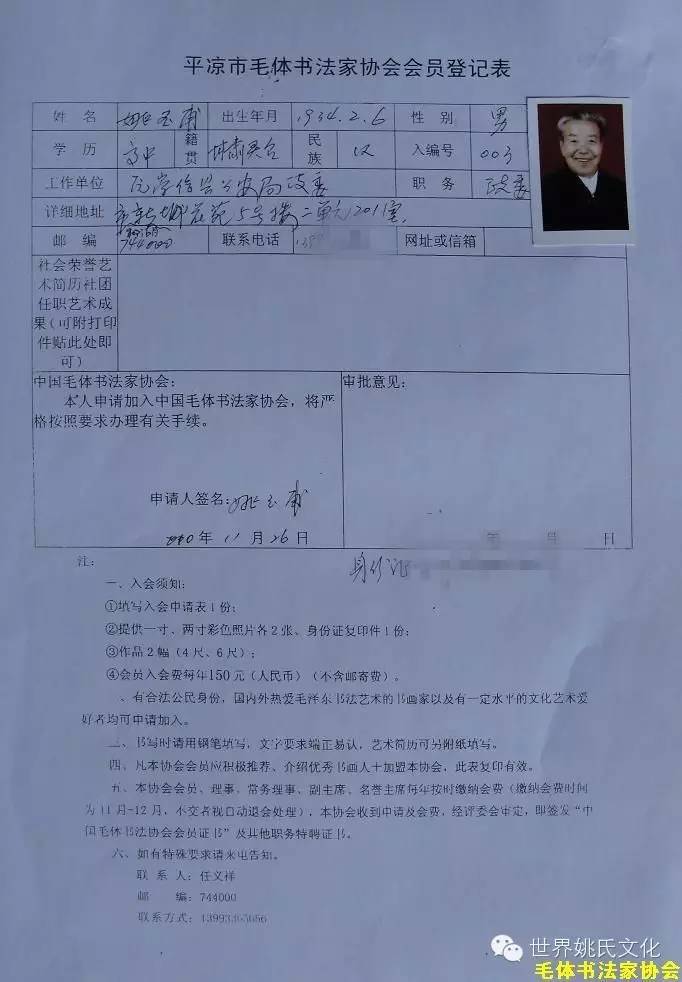 平凉市毛体书法家协会会员登记表
姓 名 姚玉甫 出生年月 1934.2.6 性 别 男
学 历 高中 籍贯 甘肃灵台 民族 汉 入编号 003
工作单位 公安局政委 职 务 政委
详细地址 花苑5号楼二单元201室
邮 编 744000 联系电话 网址或信箱
社会荣誉艺
术简历社团
任职艺术成
果(可附打印
件贴此处即
可)
中国毛体书法家协会: 审批意见:
本人申请加入中国毛体书法家协会，将严
格按照要求办理有关手续。
申请人签名:姚玉甫
2010年 11 月 26日 年 月 日
注: 身份证
一、入会须知:
①填写入会申请表1份;
②提供一寸、两寸彩色照片各2张、身份证复印件1份;
③作品2幅(4尺、6尺);
④会员入会费每年150元(人民币)(不含邮寄费)。
、有合法公民身份，国内外热爱毛泽东书法艺术的书画家以及有一定水平的文化艺术爱
好者均可申请加入。
三、书写时请用钢笔填写，文字要求端正易认，艺术简历可另附纸填写。
四、凡本协会会员应积极推荐、介绍优秀书画人士加盟本协会，此表复印有效。
五、本协会会员、理事、常务理事、副主席、名誉主席每年按时缴纳会费(缴纳会费时间
为11月-12月，不交者视自动退会处理)，本协会收到申请及会费，经评委会审定，即签发“中
国毛体书法协会会员证书”及其他职务特聘证书。
六、如有特殊要求请来电告知。
联 系 人:任文祥
邮 编:744000
联系方式:
世界姚氏文化
毛体书法家协会